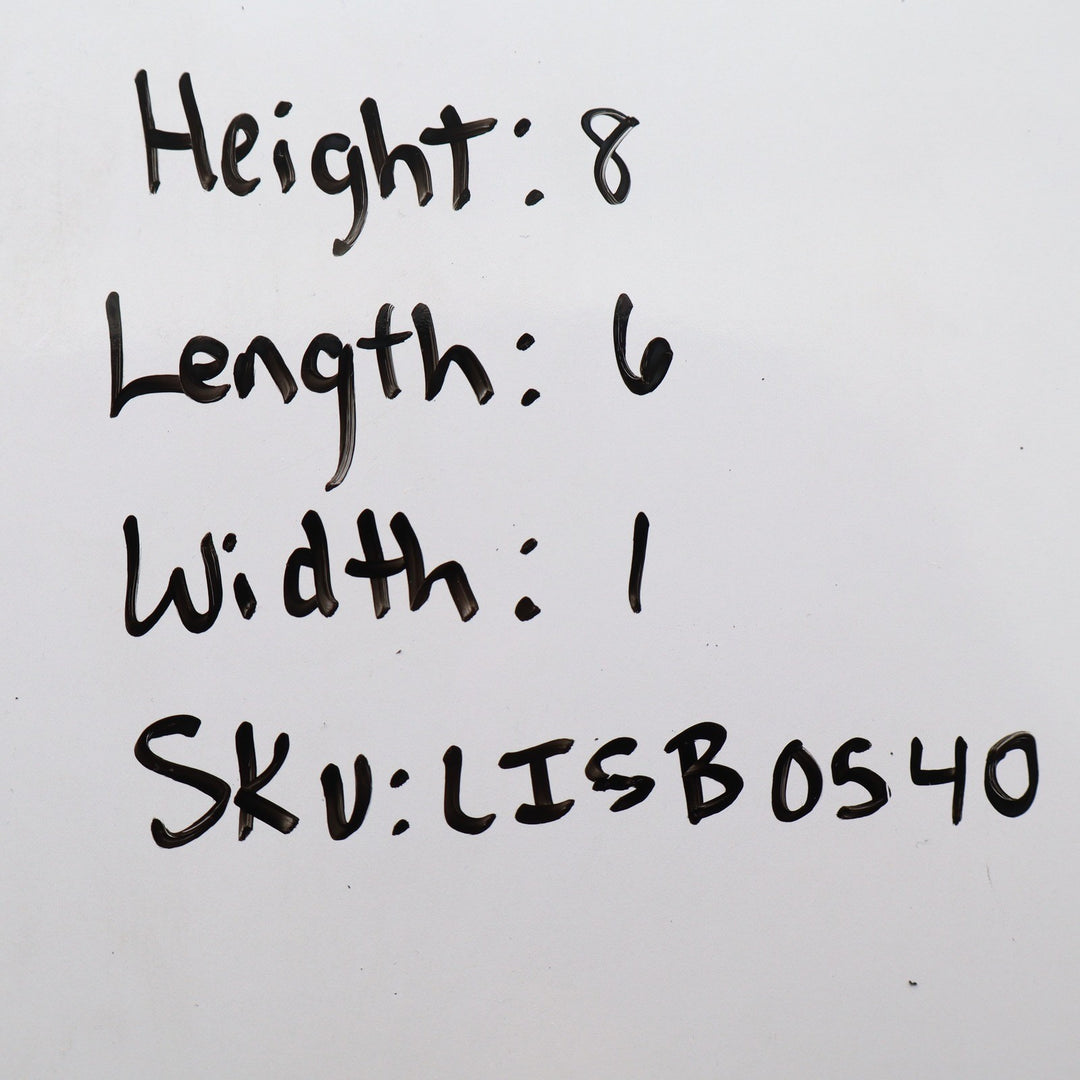 Height: 8
Length: 6
Width: 1
SKU: LISBOS40